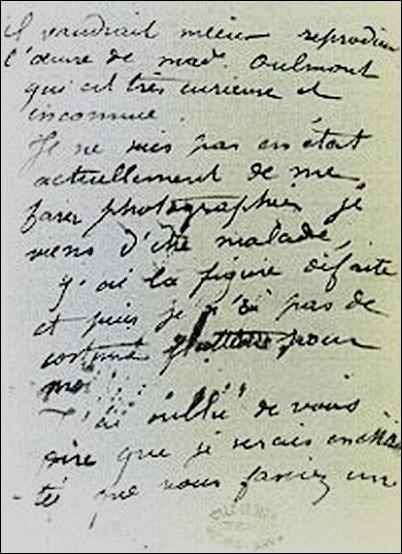 il vaudrait mieux reproduire
l'œuvre de mad. Oulmont
qui est très curieuse et
inconnue.
Je ne suis pas en état
actuellement de me
faire photographier je
viens d'être malade,
j'ai la figure défaite
et puis je n'ai pas de
costume flatteur pour
moi
J'ai oublié de vous
dire que je serais enchan
té que vous fassiez une